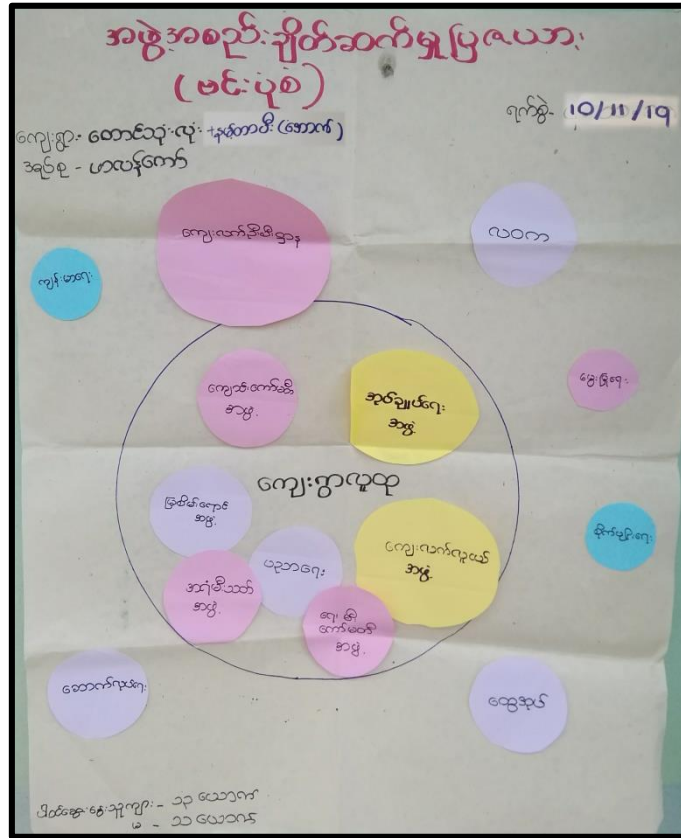 အဖွဲ့အစည်းချိတ်ဆက်မှုပြဇယား
(ဗင်းပုံစံ)
ရက်စွဲ- 10/11/19
ကျေးရွာ- တောင်သုံးလုံး +နမ့်တာပီး(အောက်)
အုပ်စု - ဟာလန်ကော်
ကျေးလက်ဦးစီးဌာန
လဝက
ကျန်းမာရေး
မွေးမြူရေး
ကျေးသစ်ကော်မတီ
အဖွဲ့
အုပ်ချုပ်ရေး
အဖွဲ့
ကျေးရွာလူထု
မြစိမ်းရောင်
အဖွဲ့
ကျေးလက်လူငယ်
အဖွဲ့
စိုက်ပျိုးရေး
ပညာရေး
အရံမီးသတ်
အဖွဲ့
ရေ၊ မီး
ကော်မတီ
အဖွဲ့
ဆောက်လုပ်ရေး
ထွေအုပ်
ပါဝင်ဆွေးနွေးသူကျား - ၁၃ ယောက်
မ - ၁၁ ယောက်